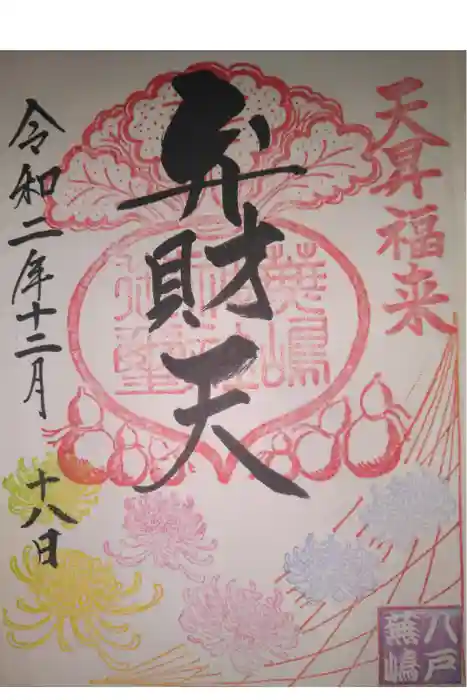 天昇福来
弁財天
蕪嶋
神社
令和二年十二月十八日
八戸
蕪嶋